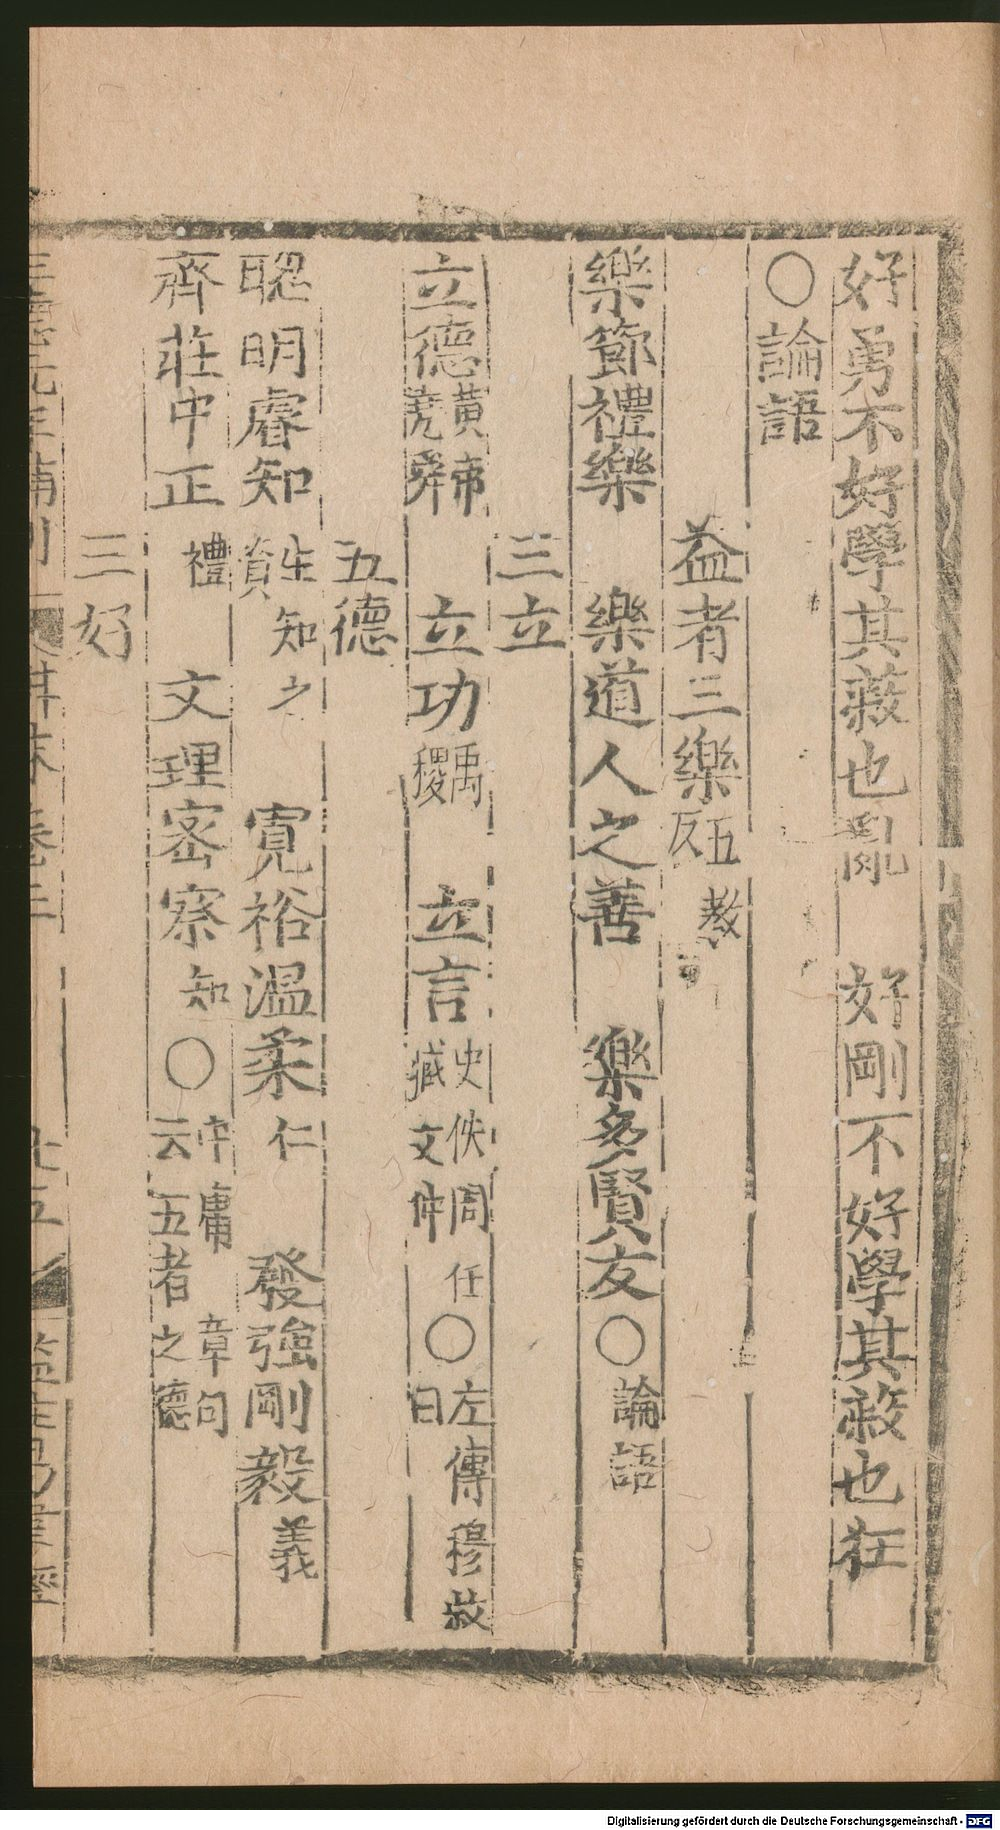 好勇不好學其蔽也亂　好剛不好學其蔽也狂
○論語
益者三樂五教反
樂節禮樂　樂道人之善　樂多賢友○論語
三立
立德黃帝堯舜　立功禹稷　立言史佚周任臧文仲○左傳穆叔曰
五德
聰明睿知生知之資　寬裕溫柔仁　發強剛毅義
齊莊中正禮　文理密察知○中庸章句云五者之德
三好
Digitalisierung gefördert durch die Deutsche Forschungsgemeinschaft - DFG